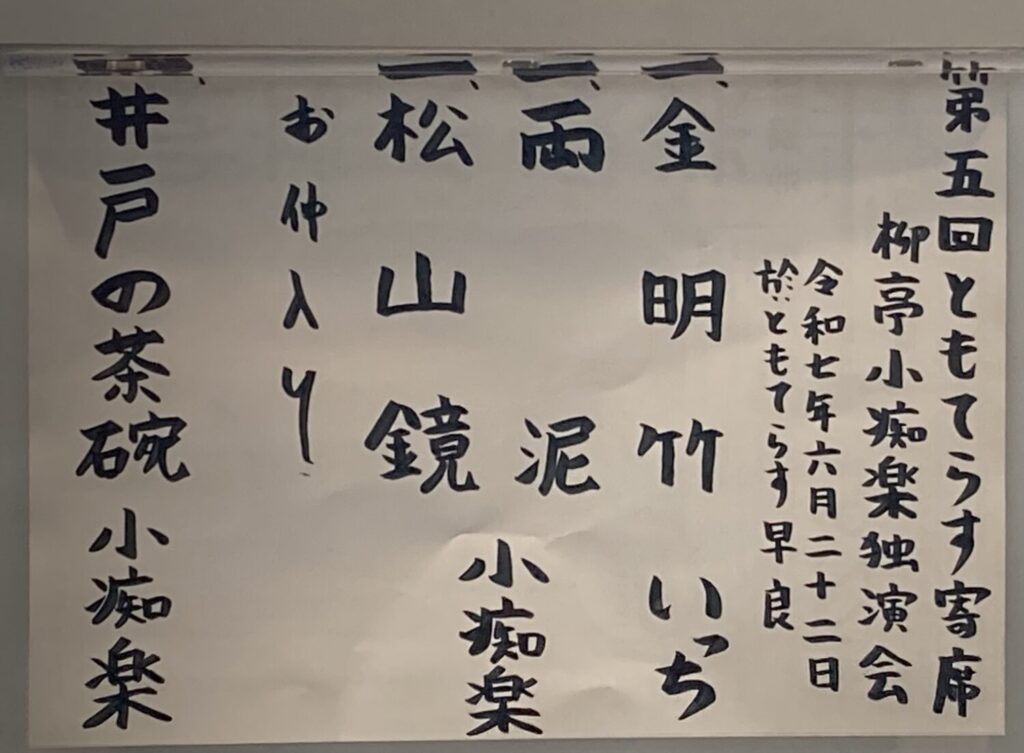 第五回ともてらす寄席
柳亭小痴楽独演会
令和七年六月二十二日
於ともてらす早良
一、金明竹 いっち
一、両泥
一、松山鏡 小痴楽
お仲入り
一、井戸の茶碗 小痴楽